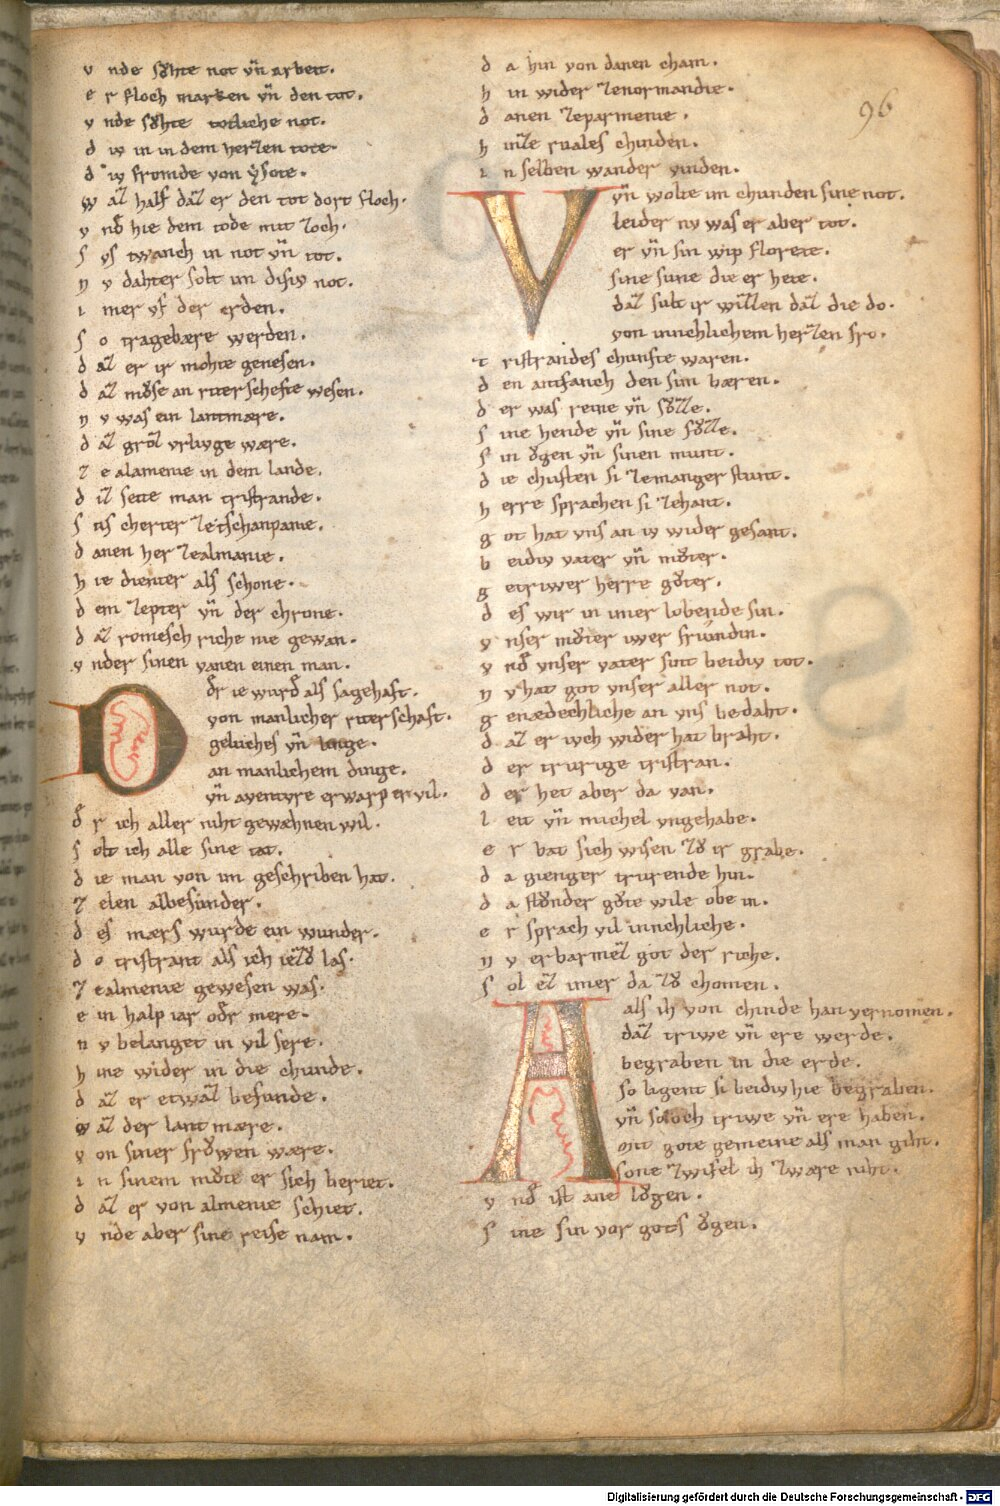 v nde sůhte not vñ arbeit.
e r floch marken vñ den tot.
v nde sůhte totliche not.
d iv in in dem herzen tote.
d iv fromde von ysote.
w aȥ half daȥ er den tot dort floh.
v nd hie dem tode mit zoch.
s vs twanch in not vñ tot.
n v dahter solt im disiv not.
i mer vf der erden.
s o tragebære werden.
d aȥ er ir mohte genesen.
d aȥ můse an riterschefte wesen.
n v was ein lantmære.
d aȥ groȥ vrlivge wære.
z e alamenie in dem lande.
d iȥ seite man tristrande.
s us cherter zetschanpanie.
d anen her zealmanie.
h ie dienter als schone.
d em zepter vñ der chrone.
d aȥ romesch riche nie gewan.
v nder sinen vanen einen man.
D ͤr ie wurd als sagehaft.
von manlicher riterschaft.
geluches vñ linge.
an manlichem dinge.
vñ aventvre erwarp er vil.
d ͤr ich aller niht gewæhnen wil.
s olt ich alle sine tat.
d ie man von im geschriben hat.
z elen albesunder.
d es mærs wurde ein wunder.
d o tristrant als ich ieȥů las.
z ealmenie gewesen was.
e in halp iar odͤr mere.
n v belanget in vil sere.
h ine wider in die chunde.
d aȥ er etwaȥ befunde.
w aȥ der lant mære.
v on siner frǒwen wære.
i n sinem můte er sich beriet.
d aȥ er von almenie schiet.
v nde aber sine reise nam.
d a hin von danen cham.
h in wider zenormandie.
d anen zeparmenie.
h inȥe ruales chinden.
i n selben wander vinden.
V vñ wolte im chunden sine not.
leider nv was er aber tot.
er vñ sin wip florete.
sine sune die er hete.
daȥ sult ir wiȥȥen daȥ die do.
von innchlichem herzen fro.
t ristrandes chunfte waren.
d en antfanch den sim bæren.
d er was reine vñ sůȥȥe.
s ine hende vñ sine fůȥȥe.
s in ǒgen vñ sinen munt.
d ie chusten si zemanger stunt.
h erre sprachen si zehant.
g ot hat vns an iv wider gesant.
b eidiv vater vñ můter.
g etriwer herre gůter.
d es wir in imer lobende sin.
v nser můter iwer friundin.
v nd vnser vater sint beidiv tot.
n v hat got vnser aller not.
g enædechliche an vns bedaht.
d aȥ er iuch wider hat braht.
d er trurige tristran.
d er het aber da van.
l eit vñ michel vngehabe.
e r bat sich wisen zů ir grabe.
d a gienger trurende hin.
d a stůnder gůte wile obe in.
e r sprach vil innchliche.
n v erbarmeȥ got der riche.
s ol eȥ imer da zů chomen.
A als ih von chinde han vernomen.
daȥ triwe vñ ere werde.
begraben in die erde.
so ligent si beidiv hie begraben.
vñ soloch triwe vñ ere haben.
mit gote gemeine als man giht.
sone zwifel ih zware niht.
v nd ist ane lǒgen.
s ine sin vor gots ǒgen.
96
Digitalisierung gefördert durch die Deutsche Forschungsgemeinschaft - DFG